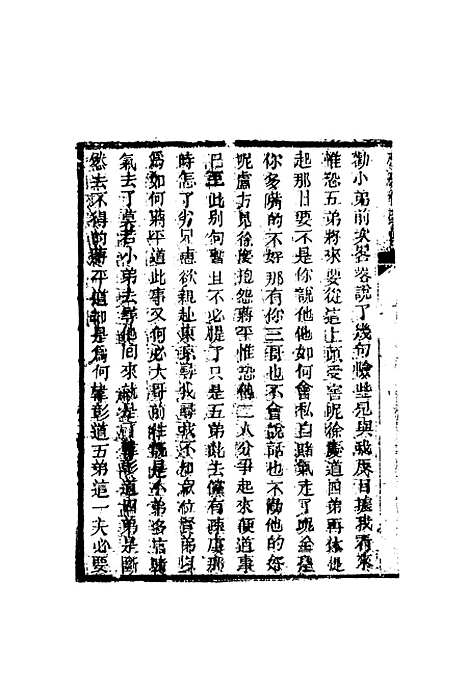 勸小弟前次畧畧說了幾句險些兒與我反目據我看來
惟恐五弟將來要從這上頭受害呢徐慶道四弟再休提
起那日要不是你說他他如何會私自賭氣走了呢全是
你多嘴的不好那有你三哥也不會說話也不勸他的好
呢盧方見徐慶抱怨蔣平惟恐他二人分爭起來便道事
已至此別的暫且不必提了只是五弟此去倘有疎虞那
時怎了劣兄意欲親赴東京尋找尋找不知衆位賢弟以
爲如何蔣平道此事又何必大哥前往既是小弟多言他賭
氣去了莫若小弟去尋他回來就是了韓彰道四弟是斷
然去不得的蔣平道却是爲何韓彰道五弟這一去必要